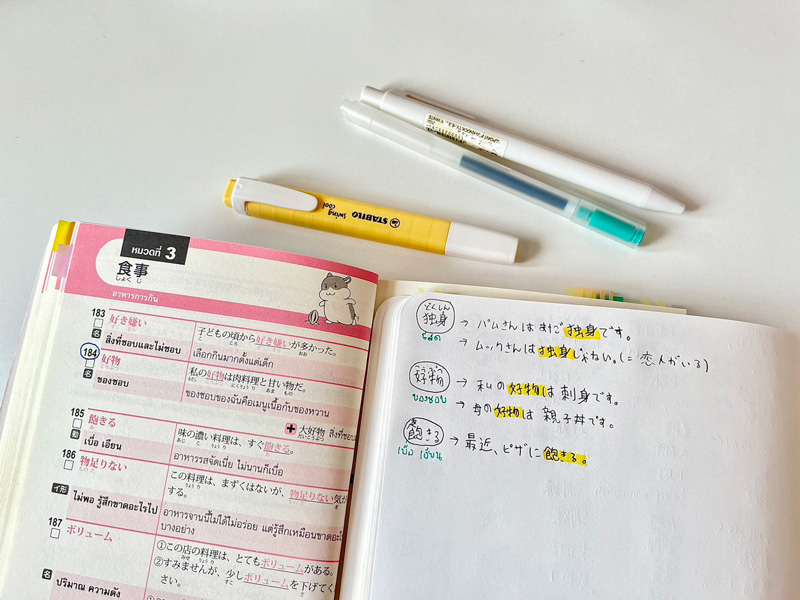 STABILO
swing
cool
หมวดที่ 3
食事
しょくじ
อาหารการกิน
183
好き嫌い
名
สิ่งที่ชอบและไม่ชอบ
子どもの頃から好き嫌いが多かった。
เลือกกินมากตั้งแต่เด็ก
184
好物
名
ของชอบ
私の好物は肉料理と甘い物だ。
ของชอบของฉันคือเมนูเนื้อกับของหวาน
+ 大好物 สิ่งที่ชอบ
185
飽きる
動
เบื่อ เอียน
味の濃い料理は、すぐ飽きる。
อาหารรสจัดเนี่ย ไม่นานก็เบื่อ
186
物足りない
イ形
ไม่พอ รู้สึกขาดอะไรไป
この料理は、まずくはないが、物足りない気が
する。
อาหารจานนี้ไม่ได้ไม่อร่อย แต่รู้สึกเหมือนขาดอะไร
บางอย่าง
187
ボリューム
名
ปริมาณ ความดัง
①この店の料理は、とてもボリュームがある。
②すみませんが、少しボリュームを下げてく
ださい。
どくしん
独身
โสด
→ パムさんはまだ独身です。
→ ムックさんは独身じゃない。(= 恋人がいる)
こうぶつ
好物
ของชอบ
→ 私の好物は刺身です。
→ 母の好物は親子丼です。
あ
飽きる
เบื่อ เอียน
→ 最近、ピザに飽きる。